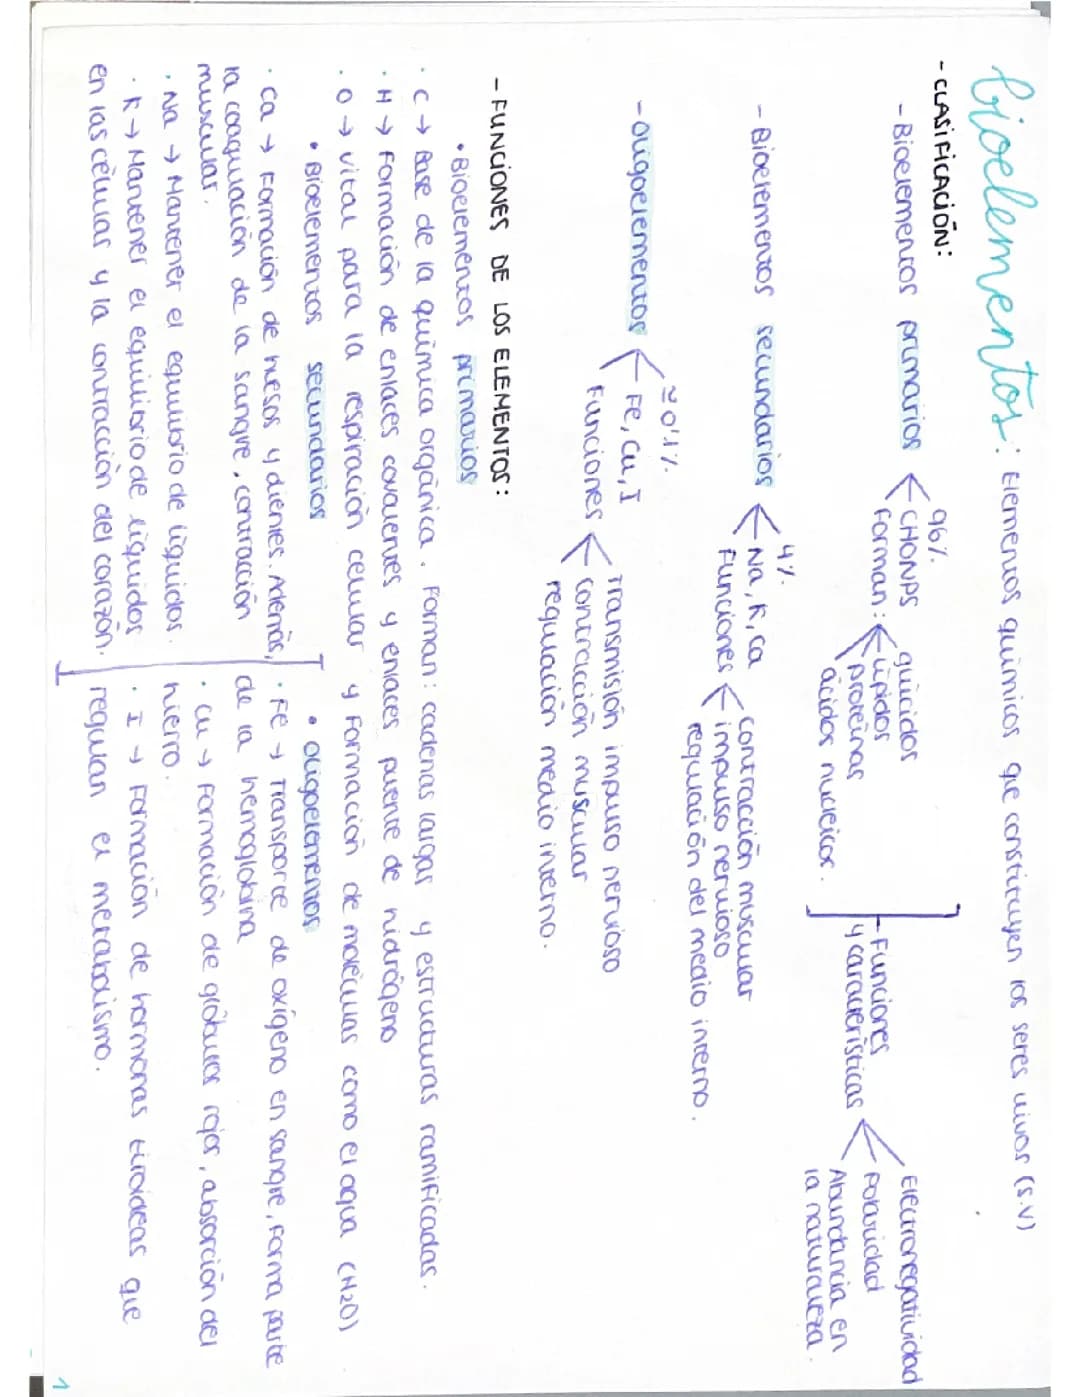 bioelementos: Elementos químicos que constituyen los seres vivos (s.v)
- CLASIFICACIÓN:
- Bioelementos primarios
96%.
CHONPS
Forman:
glúcidos
lípidos
proteínas
ácidos nucleicos.
Funciones
y características
Electronegatividad
Polaridad
Abundancia en
la naturaleza.
- Bioelementos secundarios
4%.
Na, K, Ca
Funciones
Contracción muscular
impulso nervioso
regulación del medio interno.
- Oligoelementos
≃ 0'1%.
Fe, Cu, I
Funciones
Transmisión impulso nervioso
contracción muscular
regulación medio interno.
- FUNCIONES DE LOS ELEMENTOS:
• Bioelementos primarios
· C → Base de la química orgánica. Forman: cadenas largas y estructuras ramificadas.
· H → Formación de enlaces covalentes y enlaces puente de hidrógeno
· O → vital para la respiración celular y formación de moléculas como el agua (H2O)
• Bioelementos secundarios
· Ca → Formación de huesos y dientes. Además,
la coagulación de la sangre, contracción
muscular.
· Na → Mantener el equilibrio de líquidos.
· K → Mantener el equilibrio de líquidos
en las células y la contracción del corazón.
• oligoelementos
· Fe → Transporte de oxígeno en sangre, forma parte
de la hemoglobina
· Cu → Formación de glóbulos rojos, absorción del
hierro.
· I → Formación de hormonas tiroideas que
regulan el metabolismo.
1